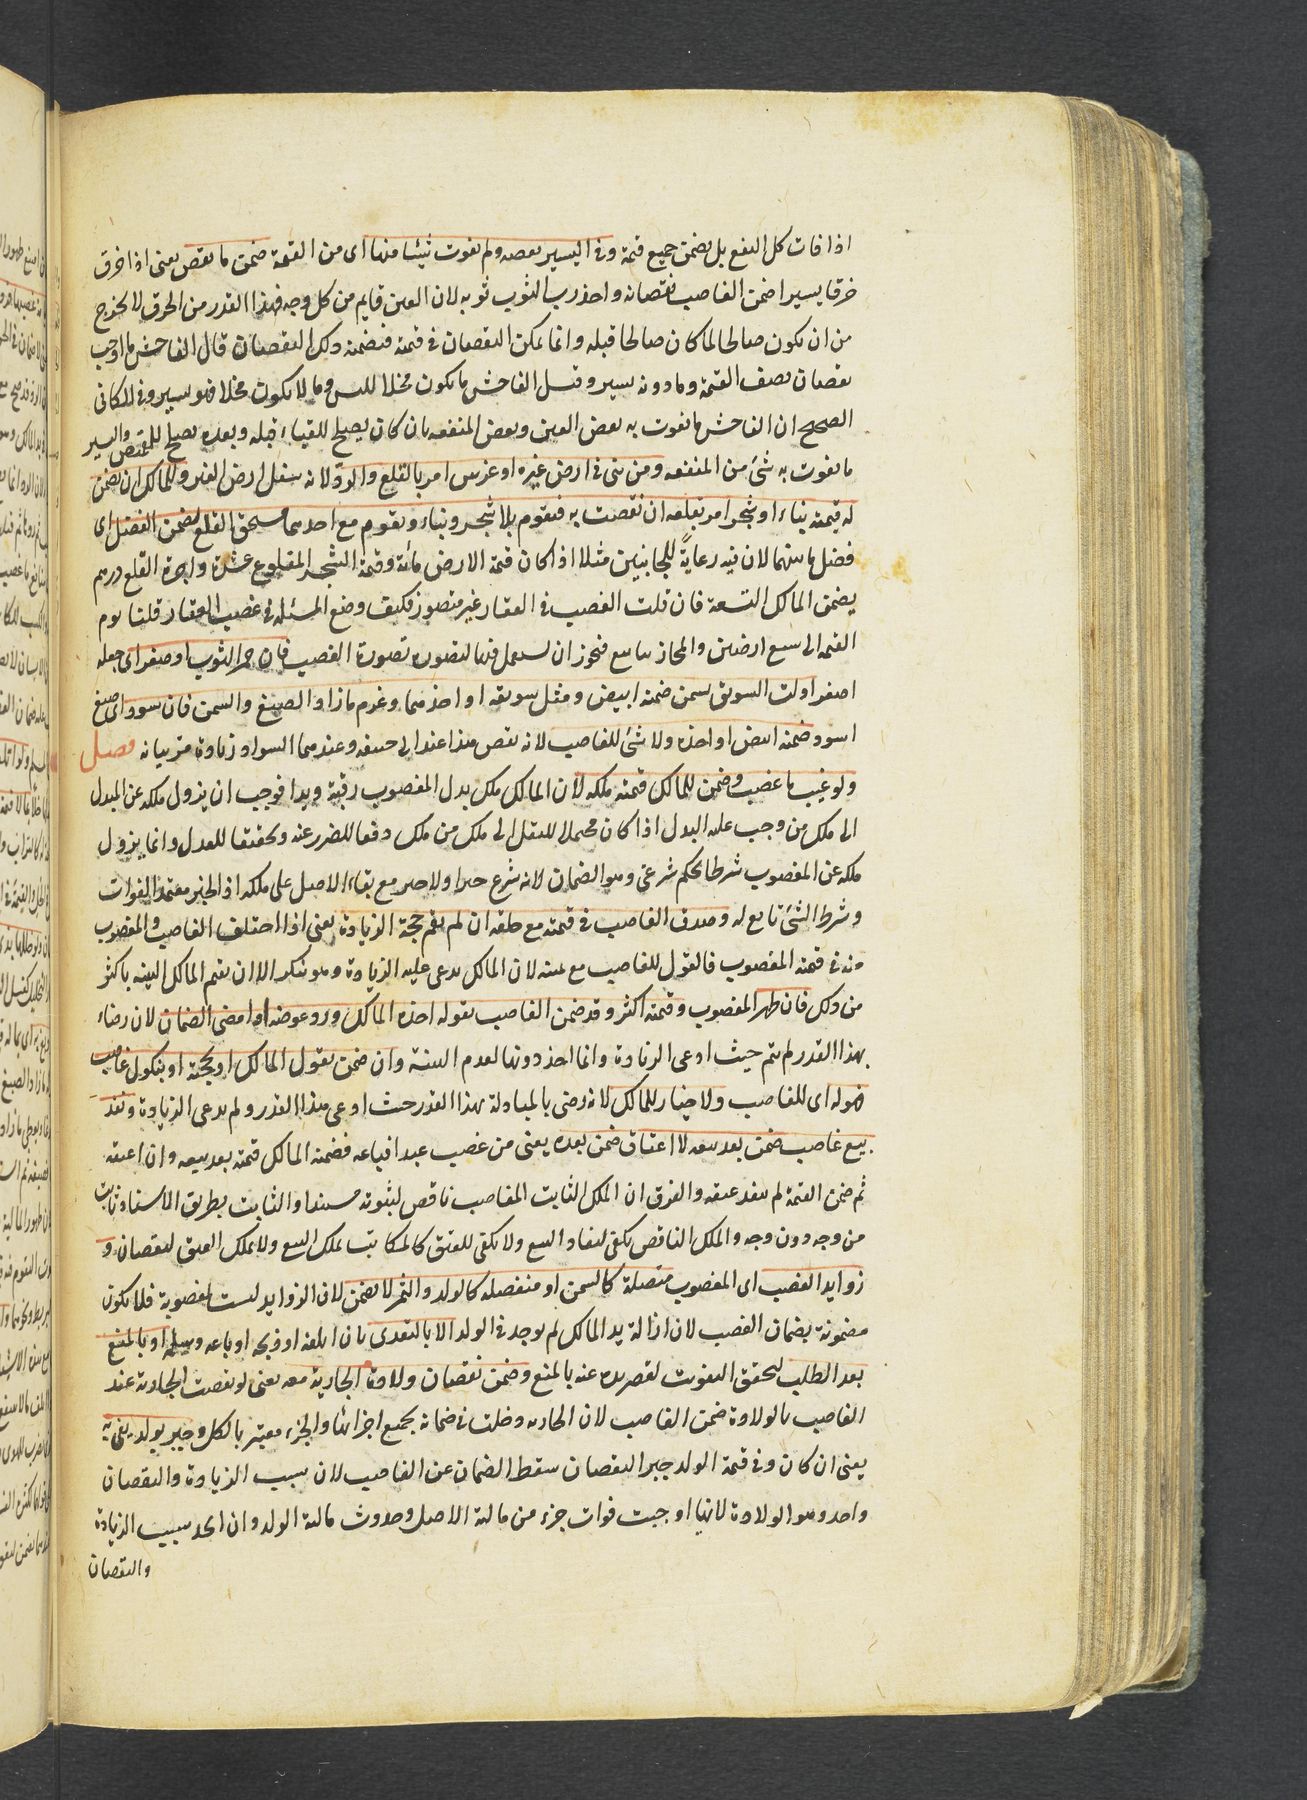 اذا فات كل النفع بل يضمن جميع قيمة وفى اليسير نقصه ولم يفوت شيئا منها اى من القيمة ضمن ما نقص يعنى اذا خرق
خرقا يسيرا ضمن الغاصب نقصانه واخذ رب الثوب ثوبه لان العين قايم من كل وجه فهذا القدر من الخرق لا يخرج
من ان يكون صالحا لما كان صالحا قبله وانما يمكن النقصان فى قيمته فيضمنه ذلك النقصان قال الفاحش ما اوجب
نقصان نصف القيمة وما دونه يسير وقيل الفاحش ما يكون مخلا للبس وما لا يكون مخلا فهو يسير وفى الكافى
الصحيح ان الفاحش ما يفوت به بعض العين وبعض المنفعه بان كان يصلح للقباء قبله وبعده يصلح للقميص واليسير
ما يفوت به شئ من المنفعه ومن بنى فى ارض غيره او غرس امر بالقلع والرد لانه شغل ارض الغير وللمالك ان يضمن
له قيمته بناء او شجر امر بقلعه ان نقصت به فيقوم بلا شجر وبناء ويقوم مع احدهما مستحق القلع فيضمن الفضل اى
فضل ما بينهما لان فيه رعاية للجانبين مثلا اذا كان قيمة الارض مائة وقيمة الشجر المقلوع عشرة واجرة القلع درهم
يضمن المالك التسعة فان قلت الغصب فى العقار غير متصور فكيف وضع المسئلة فى غصب العقار قلنا يوم
القيمه الى سبع ارضين والمجاز شايع فيجوز ان يستعمل فيما يتصوره بصورة الغصب فان حمر الثوب او صفر اى جعله
اصفر اولت السويق بسمن ضمنه ابيض ومثل سويقه او اخذهما وغرم ما زاد الصبغ والسمن فان سود اى صبغ
اسود ضمنه ابيض او اخذه ولا شئ للغاصب لانه نقص هذا عند ابى حنيفه وعندهما السواد زيادة مر بيانه فصل
ولو غيب ما غصب وضمن للمالك قيمته ملكه لان المالك ملك بدل المغصوب رقبة ويدا فوجب ان يزول ملكه عن المبدل
الى ملك من وجب عليه البدل اذا كان محتملا للنقل الى ملك من ملك دفعا للضرر عنه وتحقيقا للعدل وانما يزول
ملكه عن المغصوب شرطا لحكم شرعى وهو الضمان لانه شرع جبرا ولا جبر مع بقاء الاصل على ملكه اذ الجبر معتمد الفوات
وشرط الشئ تابع له وصدق الغاصب فى قيمته مع حلفه ان لم يقم حجة الزيادة يعنى اذا اختلف الغاصب والمغصوب
منه فى قيمة المغصوب فالقول للغاصب مع يمينه لان المالك يدعى عليه الزيادة وهو ينكر الا ان يقيم المالك البينه باكثر
من ذلك فان ظهر المغصوب وقيمته اكثر وقد ضمن الغاصب بقوله اخذه المالك ورد عوضه او امضى الضمان لان رضاه
بهذا القدر لم يتم حيث ادعى الزيادة وانما اخذ دونها لعدم البينة وان ضمن بقول المالك او بحجة او بنكول غاصب
فهو له اى للغاصب ولا خيار للمالك لانه رضى بالمبادلة بهذا القدر حيث ادعى هذا القدر ولم يدعى الزيادة ونفذ
بيع غاصب ضمن بعد بيعه لا اعتاق ضمن بعده يعنى من غصب عبدا فباعه فضمنه المالك قيمته بعد بيعه وان اعتقه
ثم ضمن القيمة لم ينفذ عتقه والفرق ان الملك الثابت للغاصب ناقص لثبوته مستندا والثابت بطريق الاستناد ثابت
من وجه دون وجه والملك الناقص يكفى لنفاذ البيع ولا يكفى للعتق كالمكاتب يملك البيع ولا يملك العتق لنقصانه و
زوايد الغصب اى المغصوب متصلة كالسمن او منفصله كالولد والثمر لا يضمن لان الزوايد ليست بمغصوبة فلا يكون
مضمونة بضمان الغصب لان ازالة يد المالك لم يوجد فى الولد الا بالتعدى بان اتلفه او ذبحه او باعه وسلمه او بالمنع
بعد الطلب لتحقق التفويت لقصر يده عنه بالمنع وضمن نقصان ولادة الجارية معه يعنى لو نقصت الجاريه عند
الغاصب بالولادة ضمن الغاصب لان الجاريه دخلت فى ضمانه بجميع اجزائها والجزء معتبر بالكل وجبر بولد يفى به
يعنى ان كان وفى قيمة الولد جبر النقصان سقط الضمان عن الغاصب لان سبب الزيادة والنقصان
واحد وهو الولادة لانها اوجبت فوات جزء من مالية الاصل وحدوث مالية الولد وان اتحد سبب الزيادة
والنقصان